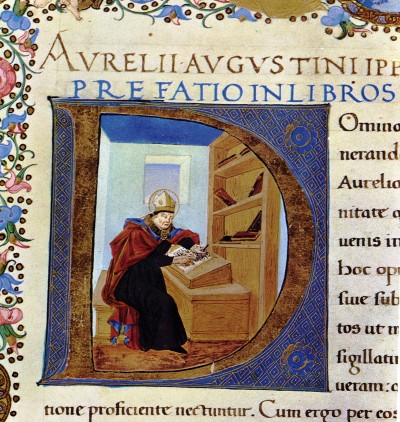 AVRELII·AVGVSTINI
PREFATIO IN LIBROS
Domino
nerand
Aurelio
nitate q
uenis in
hoc opu
siue sub
tos ut m
sigillati
ueram: c
tione proficiente nectuntur. Cum ergo per eos